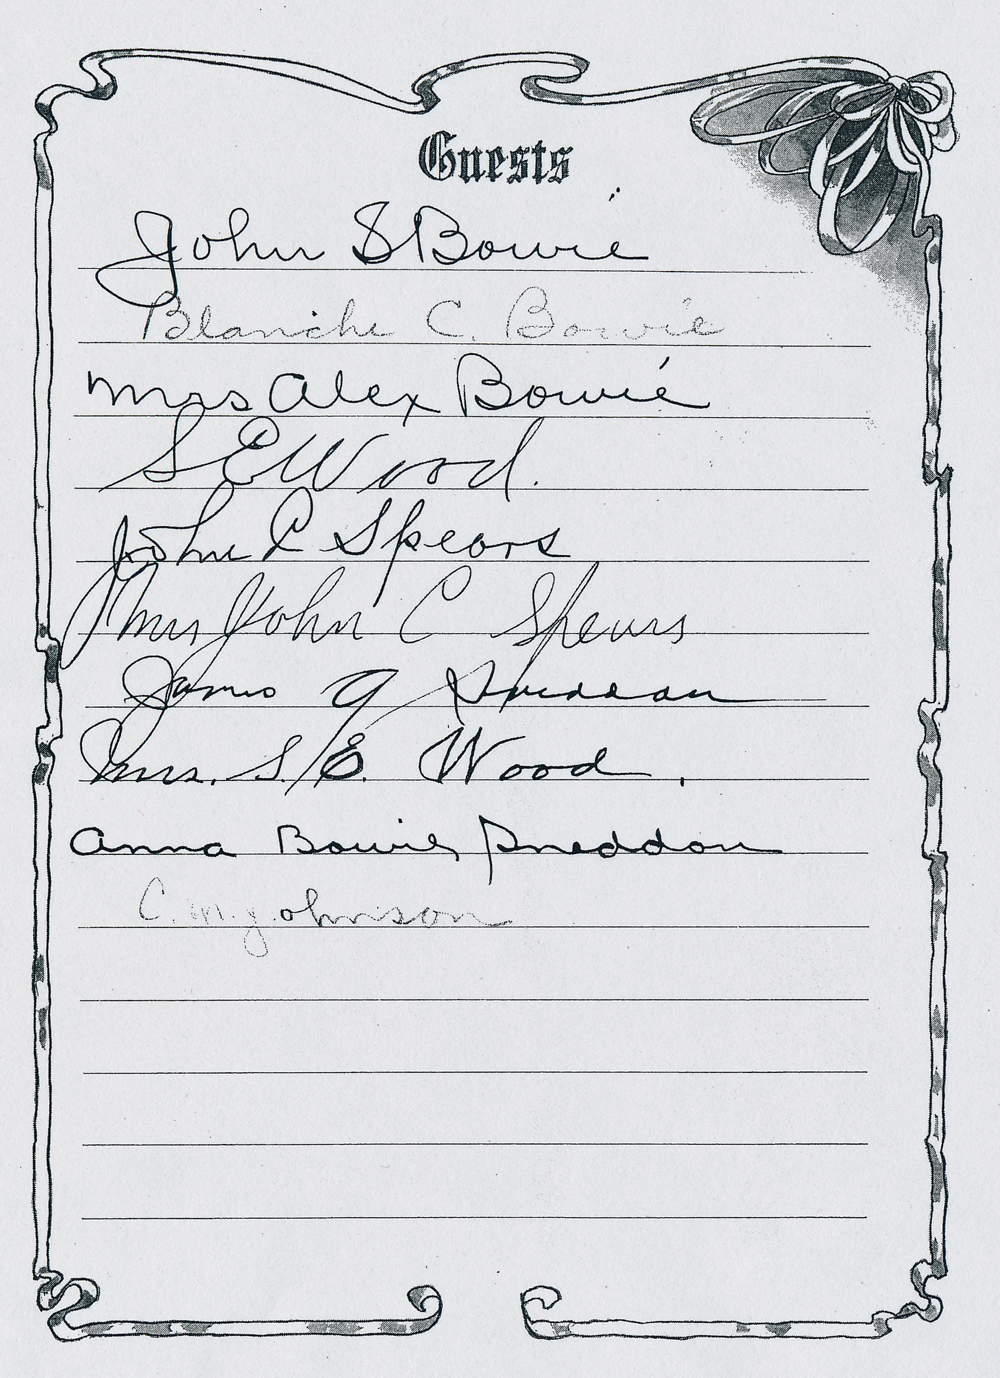 Guests
John S Bowie
Blanche C. Bowie
Mrs Alex Bowie
S E Wood.
John C Spears
Mrs John C Spears
James G Sneddon
Mrs. S. E. Wood.
Anna Bowie Sneddon
C. M. Johnson